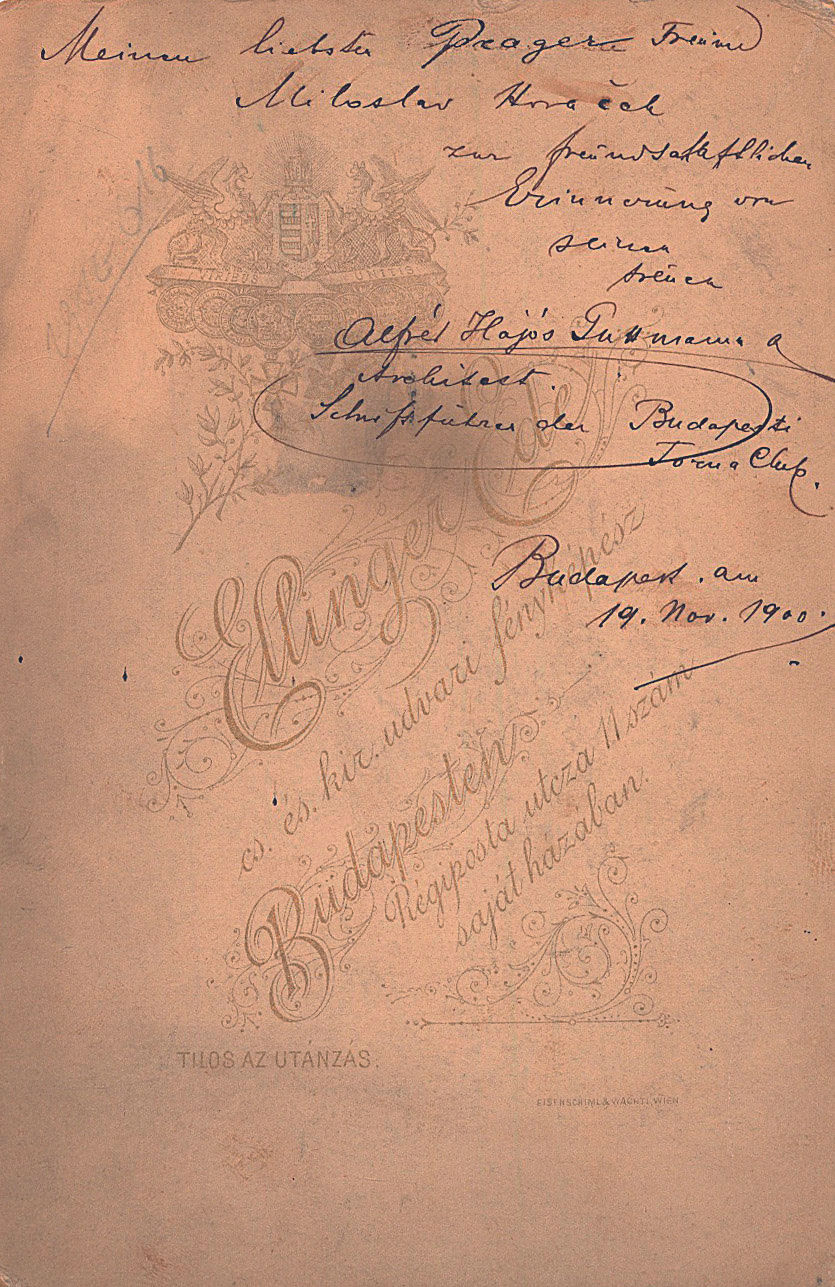 Meinen liebsten Prager Freund
Miloslav Horáček
zur freundschaftlichen
Erinnerung von
seinen
treuen
Alfréd Hajós Guttmann
Architect.
Schriftführer der Budapesti
Torna Club.
Budapest. am
19. Nov. 1900.
VIRIBUS UNITIS
Ellinger Ede
cs. és. kir. udvari fényképész
Budapesten
Régiposta utcza 11 szám
saját házában.
TILOS AZ UTÁNZÁS.
EISENSCHIML & WACHTL, WIEN